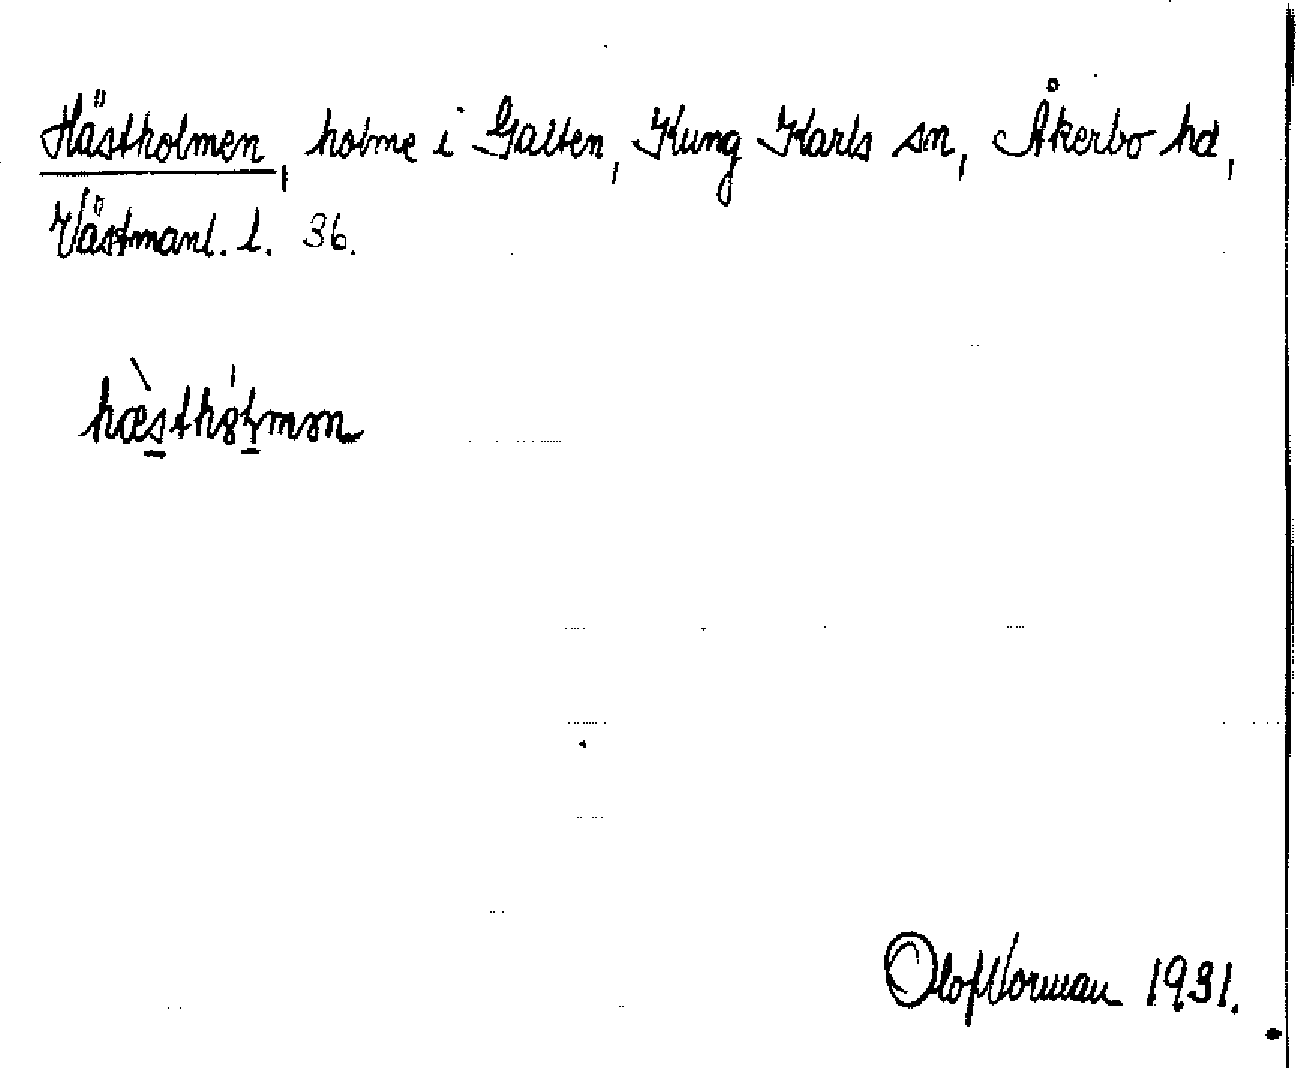 Hästholmen, holme i Galten, Kung Karls sn, Åkerbo hd,
Västmanl. l. 36.
hæ̀sthól̥mən
Olof Norman 1931.